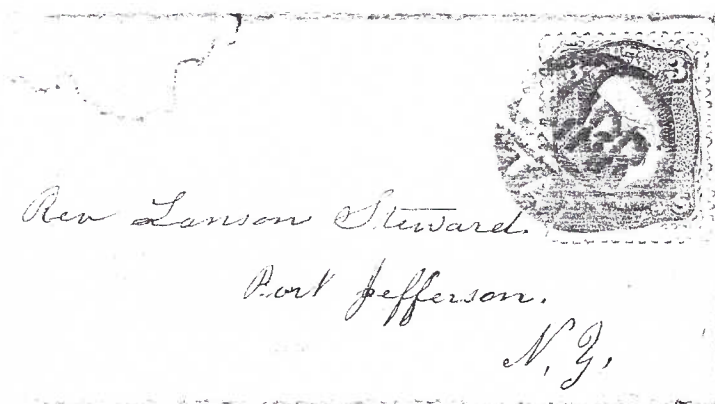 Rev Lanson Steward.
Port Jefferson.
N.Y.
3 3